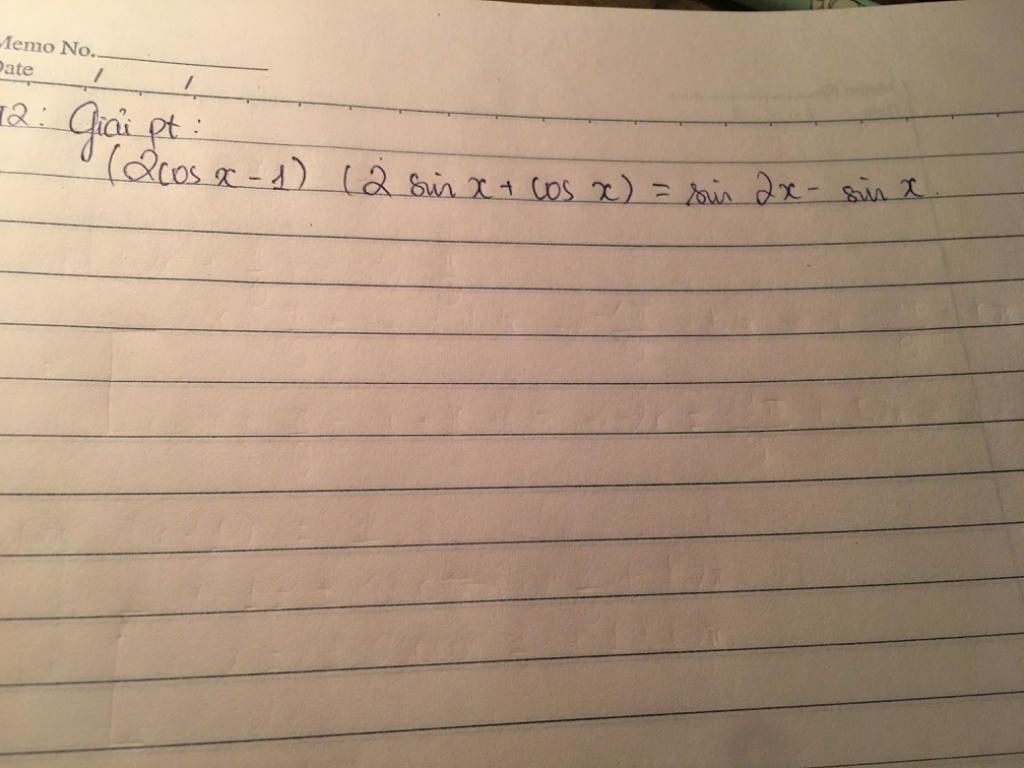 Memo No.
Date / /
12: Giải pt:
(2cos x - 1) (2 sin x + cos x) = sin 2x - sin x.